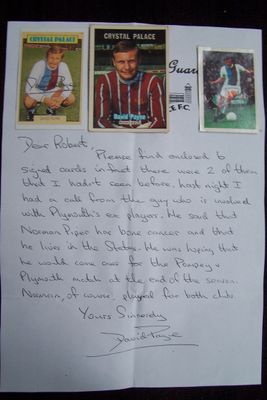 CRYSTAL PALACE
CRYSTAL PALACE
David Payne
Guar
E.F.C.
Dear Robert,
Please find enclosed to
signed cards infact there were 2 of them
that I hadn't seen before. Last night I
had a call from the guy who is involved
with Plymouth's ex players. He said that
Norman Piper has bone cancer and that
he lives in the States. He was hoping that
he would come over for the Pompey v
Plymouth match at the end of the season.
Norman, of course, played for both clubs.
Yours Sincerely
David Payne